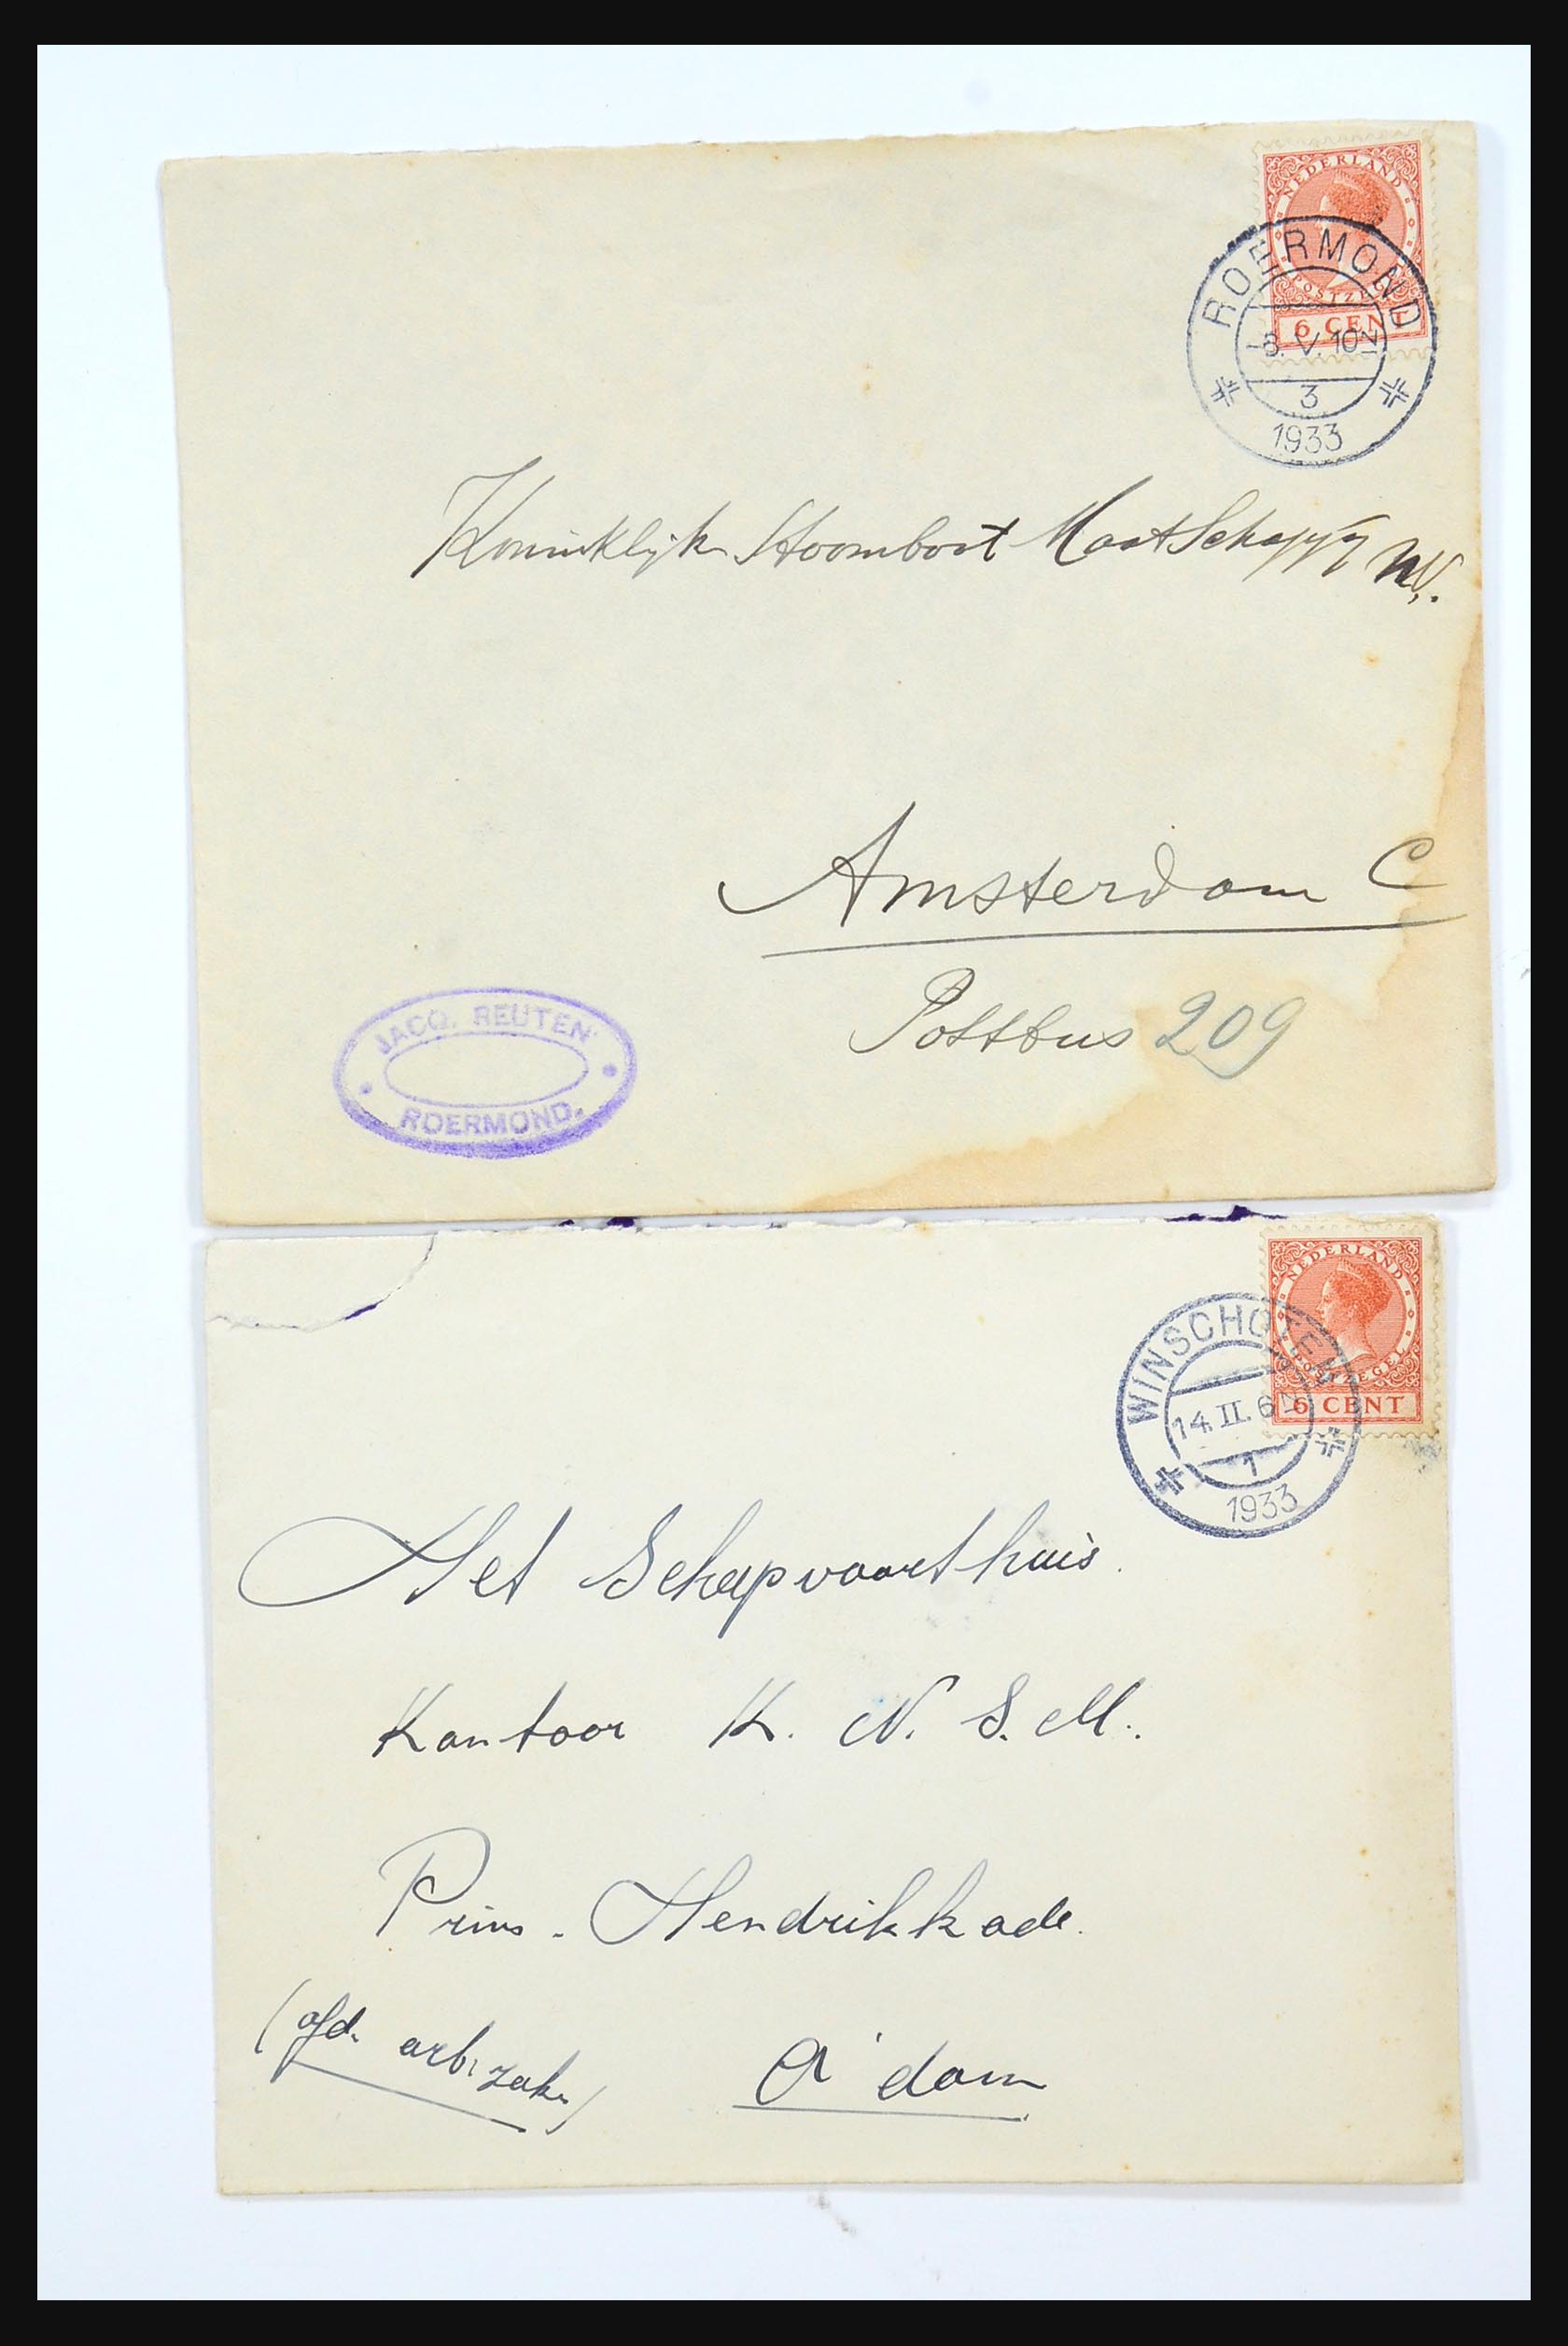 NEDERLAND
POSTZEGEL
6 CENT
ROERMOND
8. V. 10 N
3
1933
Koninklijk Stoomboot Maatschappij N.V.
Amsterdam C
Postbus 209
JACQ. REUTEN
ROERMOND.
NEDERLAND
POSTZEGEL
6 CENT
WINSCHOTEN
14. II. 6 N
1
1933
Het Scheepvaarthuis.
Kantoor K. N. S. M.
Prins-Hendrikkade.
(afd. arb. zaken)
A'dam